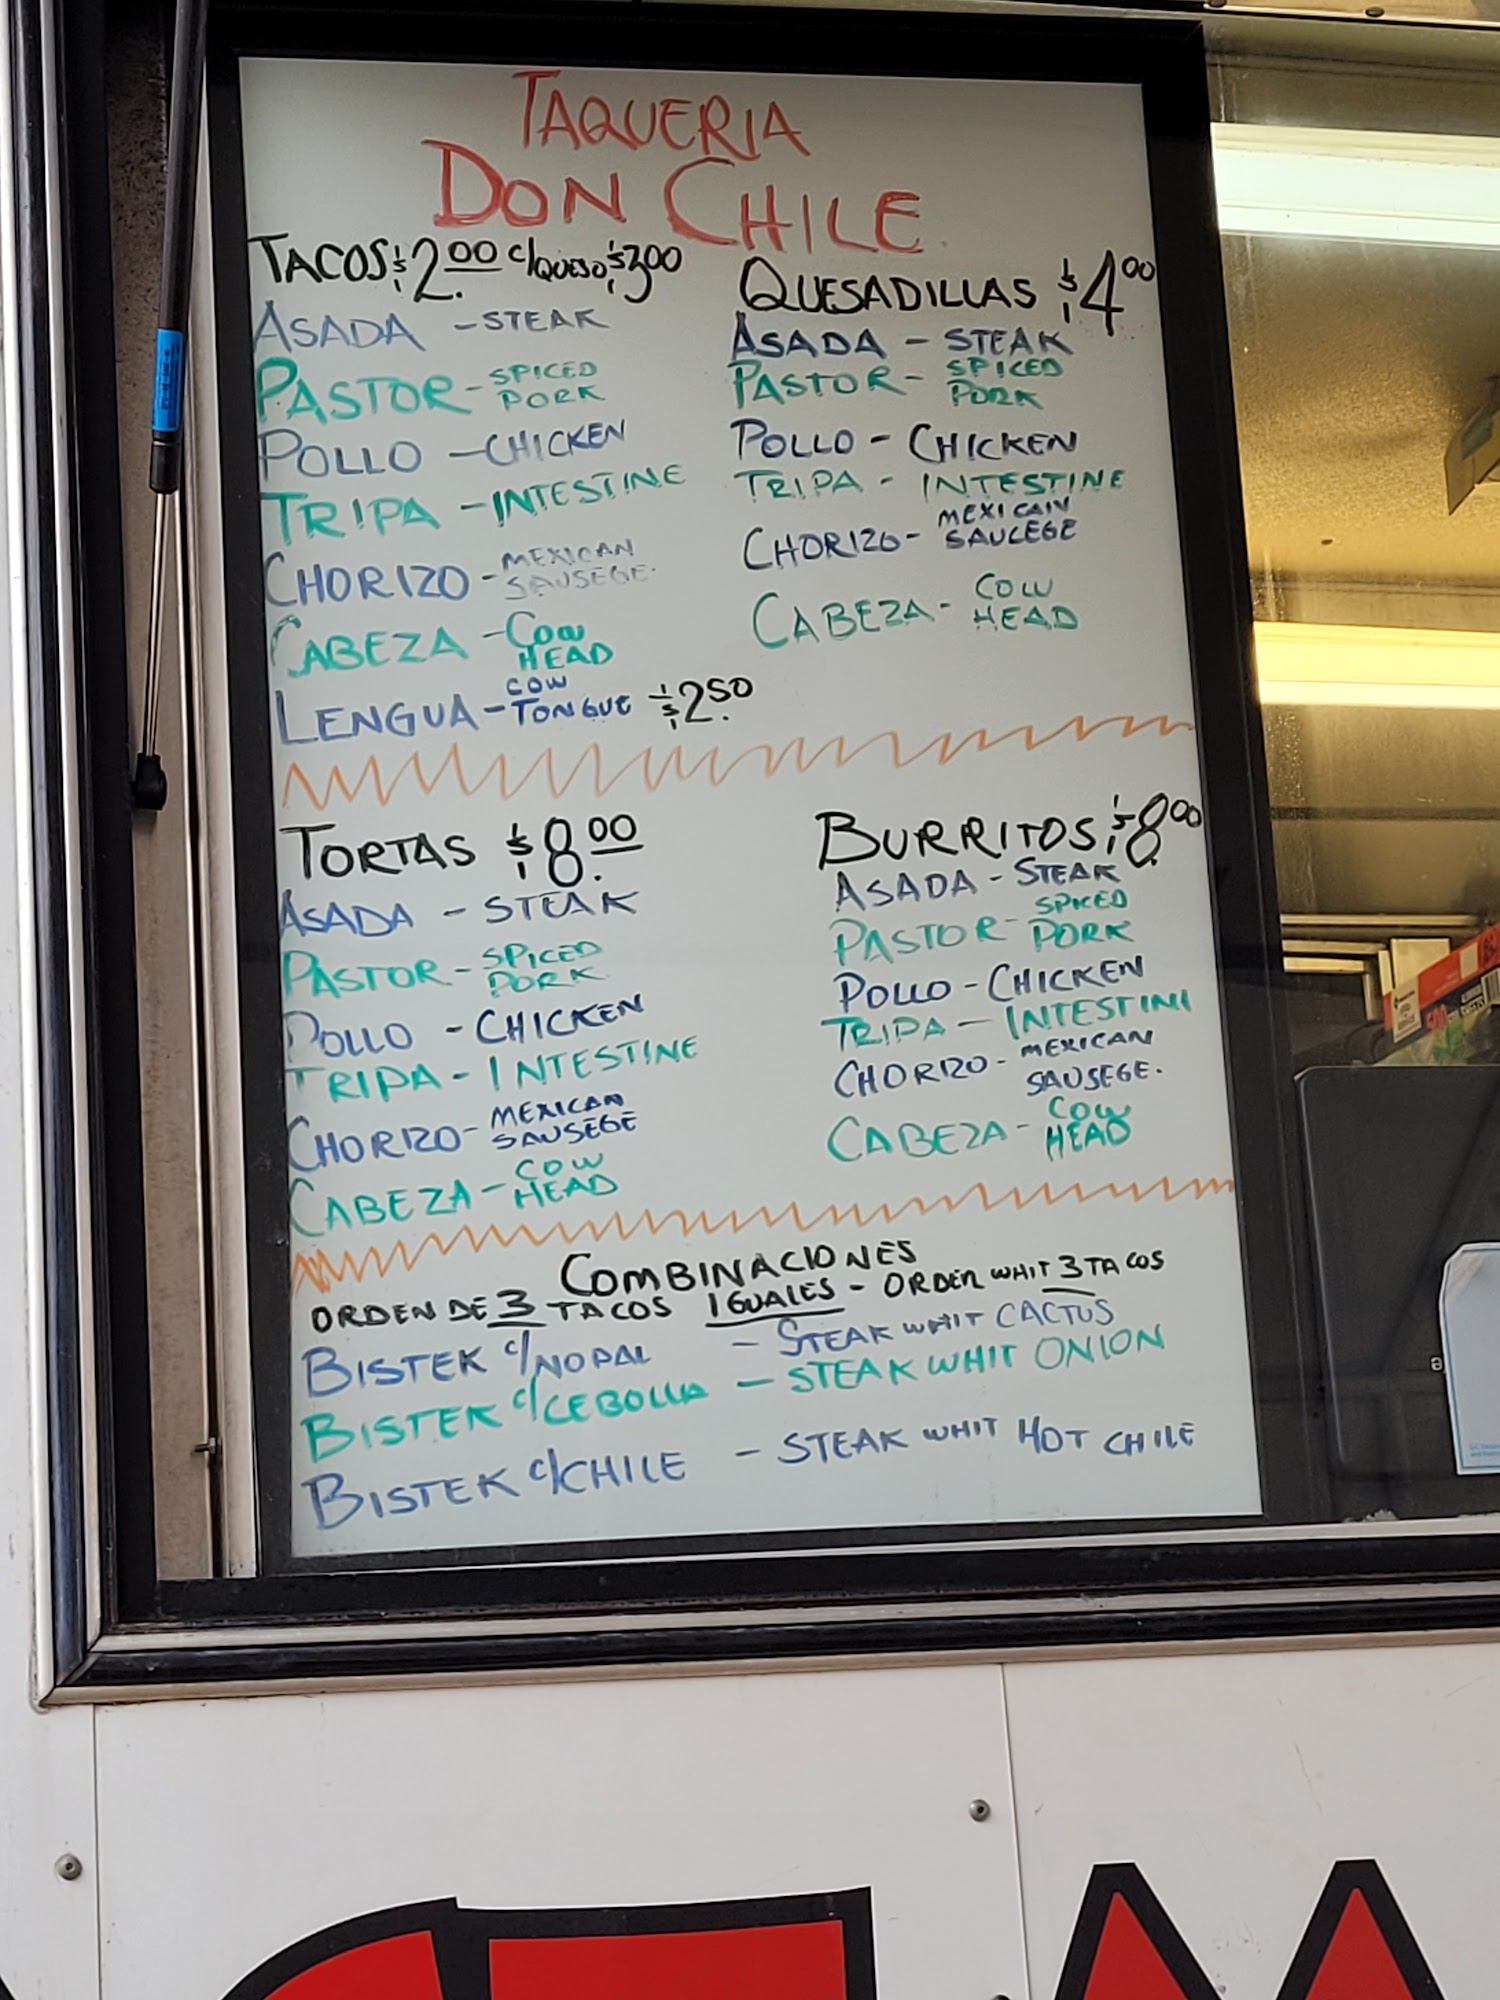 TAQUERIA
DON CHILE
TACOS $2.00 c/QUESO $3.00
ASADA - STEAK
PASTOR - SPICED PORK
POLLO - CHICKEN
TRIPA - INTESTINE
CHORIZO - MEXICAN SAUSEGE.
CABEZA - COW HEAD
LENGUA - COW TONGUE $2.50
QUESADILLAS $4.00
ASADA - STEAK
PASTOR - SPICED PORK
POLLO - CHICKEN
TRIPA - INTESTINE
CHORIZO - MEXICAN SAUCEGE
CABEZA - COW HEAD
TORTAS $8.00
ASADA - STEAK
PASTOR - SPICED PORK
POLLO - CHICKEN
TRIPA - INTESTINE
CHORIZO - MEXICAN SAUSEGE
CABEZA - COW HEAD
BURRITOS $8.00
ASADA - STEAK
PASTOR - SPICED PORK
POLLO - CHICKEN
TRIPA - INTESTINI
CHORIZO - MEXICAN SAUSEGE.
CABEZA - COW HEAD
COMBINACIONES
ORDEN DE 3 TACOS IGUALES - ORDER WHIT 3 TACOS
BISTEK c/NOPAL - STEAK WHIT CACTUS
BISTEK c/CEBOLLA - STEAK WHIT ONION
BISTEK c/CHILE - STEAK WHIT HOT CHILE